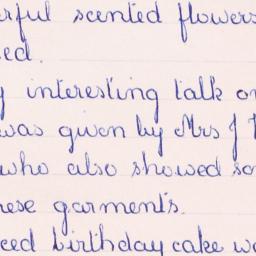 erful scented flowers
ed.
y interesting talk on
was given by Mrs J
who also showed so
hese garments.
eed birthday cake wa